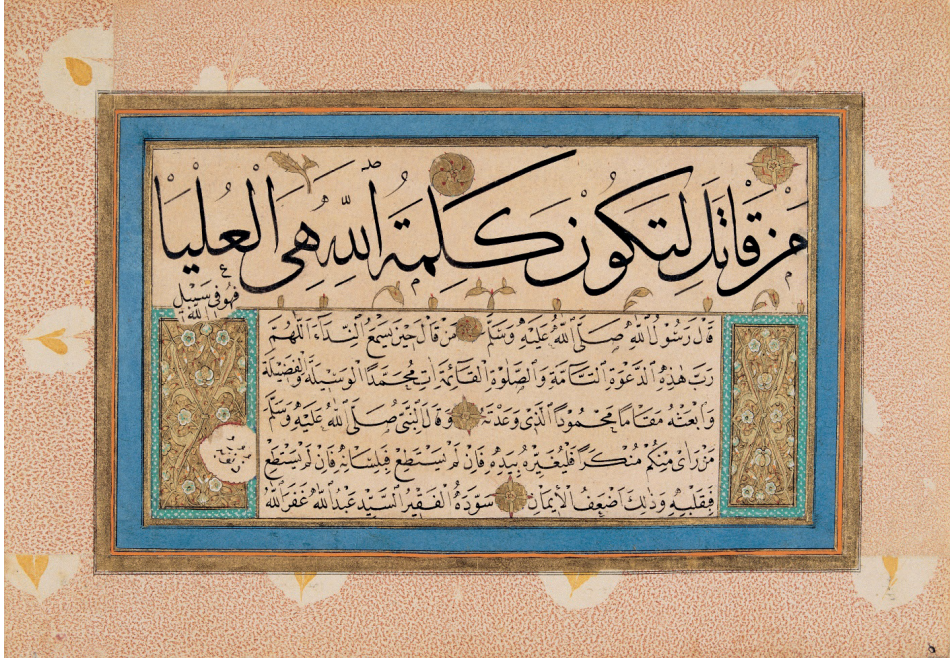 مَنْ قَاتَلَ لِتَكُونَ كَلِمَةُ اللّٰهِ هِيَ الْعُلْيَا
فَهُوَ فِي سَبِيلِ
اللّٰه
قَالَ رَسُولُ اللّٰهِ صَلَّى اللّٰهُ عَلَيْهِ وَسَلَّمَ مَنْ قَالَ حِينَ يَسْمَعُ النِّدَاءَ اَللّٰهُمَّ
رَبَّ هٰذِهِ الدَّعْوَةِ التَّامَّةِ وَالصَّلٰوةِ الْقَائِمَةِ اٰتِ مُحَمَّدًا الْوَسِيلَةَ وَالْفَضِيلَةَ
وَابْعَثْهُ مَقَامًا مَحْمُودًا الَّذِي وَعَدْتَهُ وَقَالَ النَّبِيُّ صَلَّى اللّٰهُ عَلَيْهِ وَسَلَّمَ
مَنْ رَاٰى مِنْكُمْ مُنْكَرًا فَلْيُغَيِّرْهُ بِيَدِهِ فَاِنْ لَمْ يَسْتَطِعْ فَبِلِسَانِهِ فَاِنْ لَمْ يَسْتَطِعْ
فَبِقَلْبِهِ وَذٰلِكَ اَضْعَفُ الْاِيمَانِ سَوَّدَهُ الْفَقِيرُ السَّيِّدُ عَبْدُ اللّٰهِ غَفَرَ اللّٰهُ